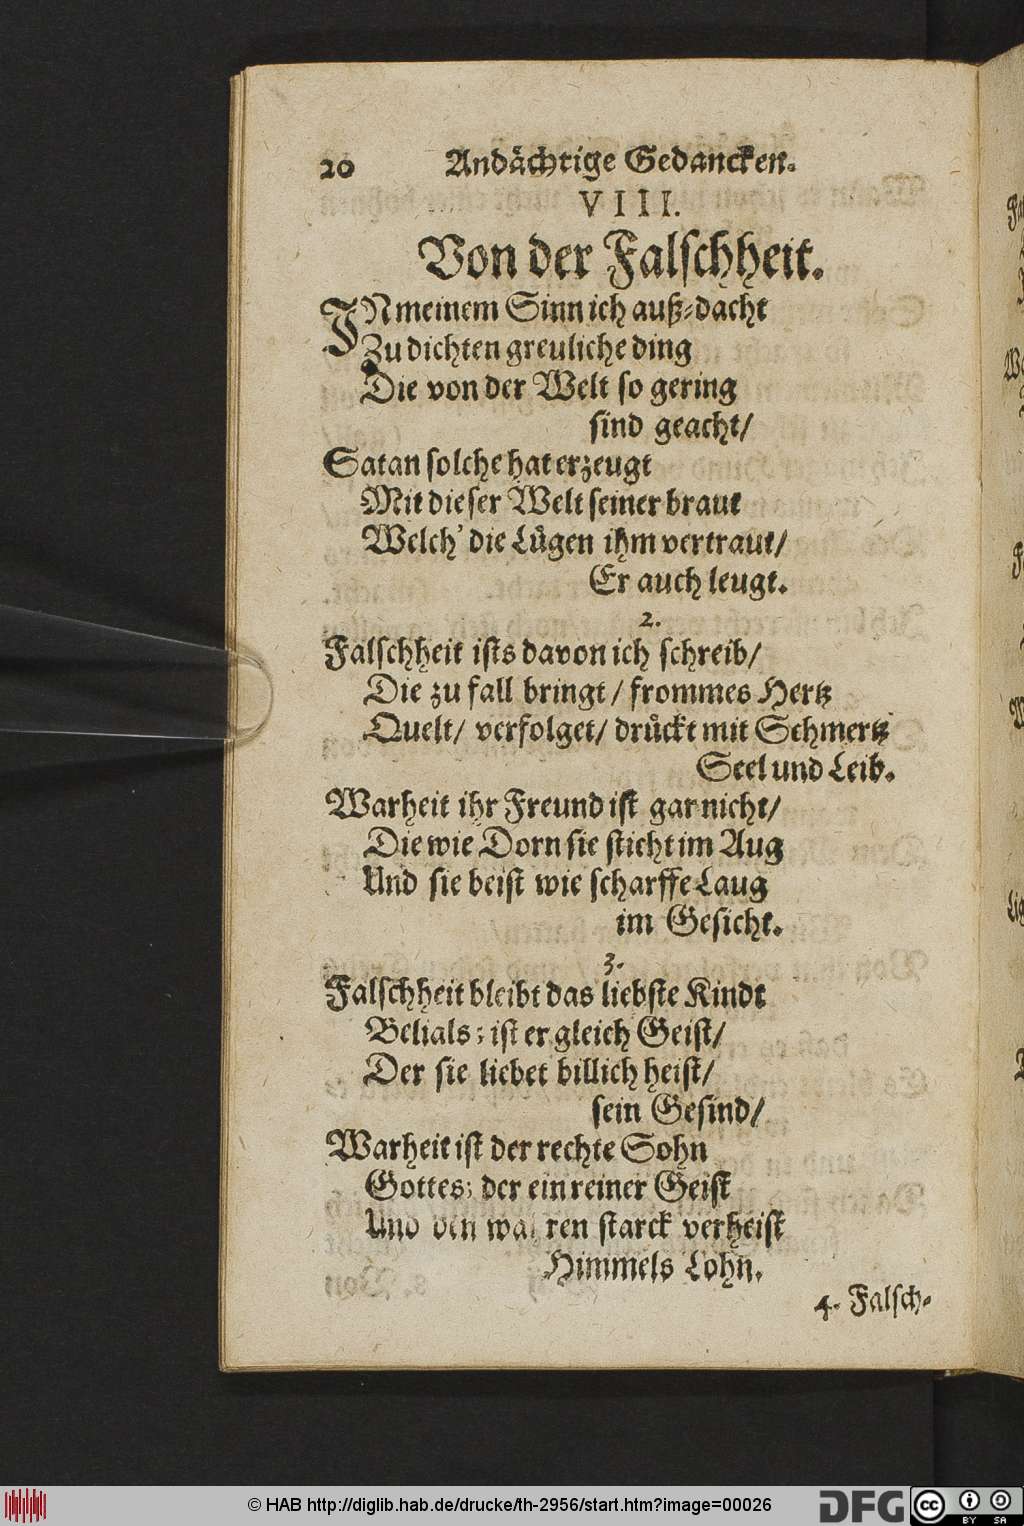 20 Andächtige Gedancken.
VIII.
Von der Falschheit.
IN meinem Sinn ich auß-dacht
Zu dichten greuliche ding
Die von der Welt so gering
sind geacht/
Satan solche hat erzeugt
Mit dieser Welt seiner braut
Welch' die Lügen ihm vertraut/
Er auch leugt.
2.
Falschheit ists davon ich schreib/
Die zu fall bringt/ frommes Hertz
Quelt/ verfolget/ drückt mit Schmertz
Seel und Leib.
Warheit ihr Freund ist gar nicht/
Die wie Dorn sie sticht im Aug
Und sie beist wie scharffe Laug
im Gesicht.
3.
Falschheit bleibt das liebste Kindt
Belials; ist er gleich Geist/
Der sie liebet billich heist/
sein Gesind/
Warheit ist der rechte Sohn
Gottes; der ein reiner Geist
Und den wahren starck verheist
Himmels Lohn.
4. Falsch-
© HAB http://diglib.hab.de/drucke/th-2956/start.htm?image=00026
DFG
cc BY SA